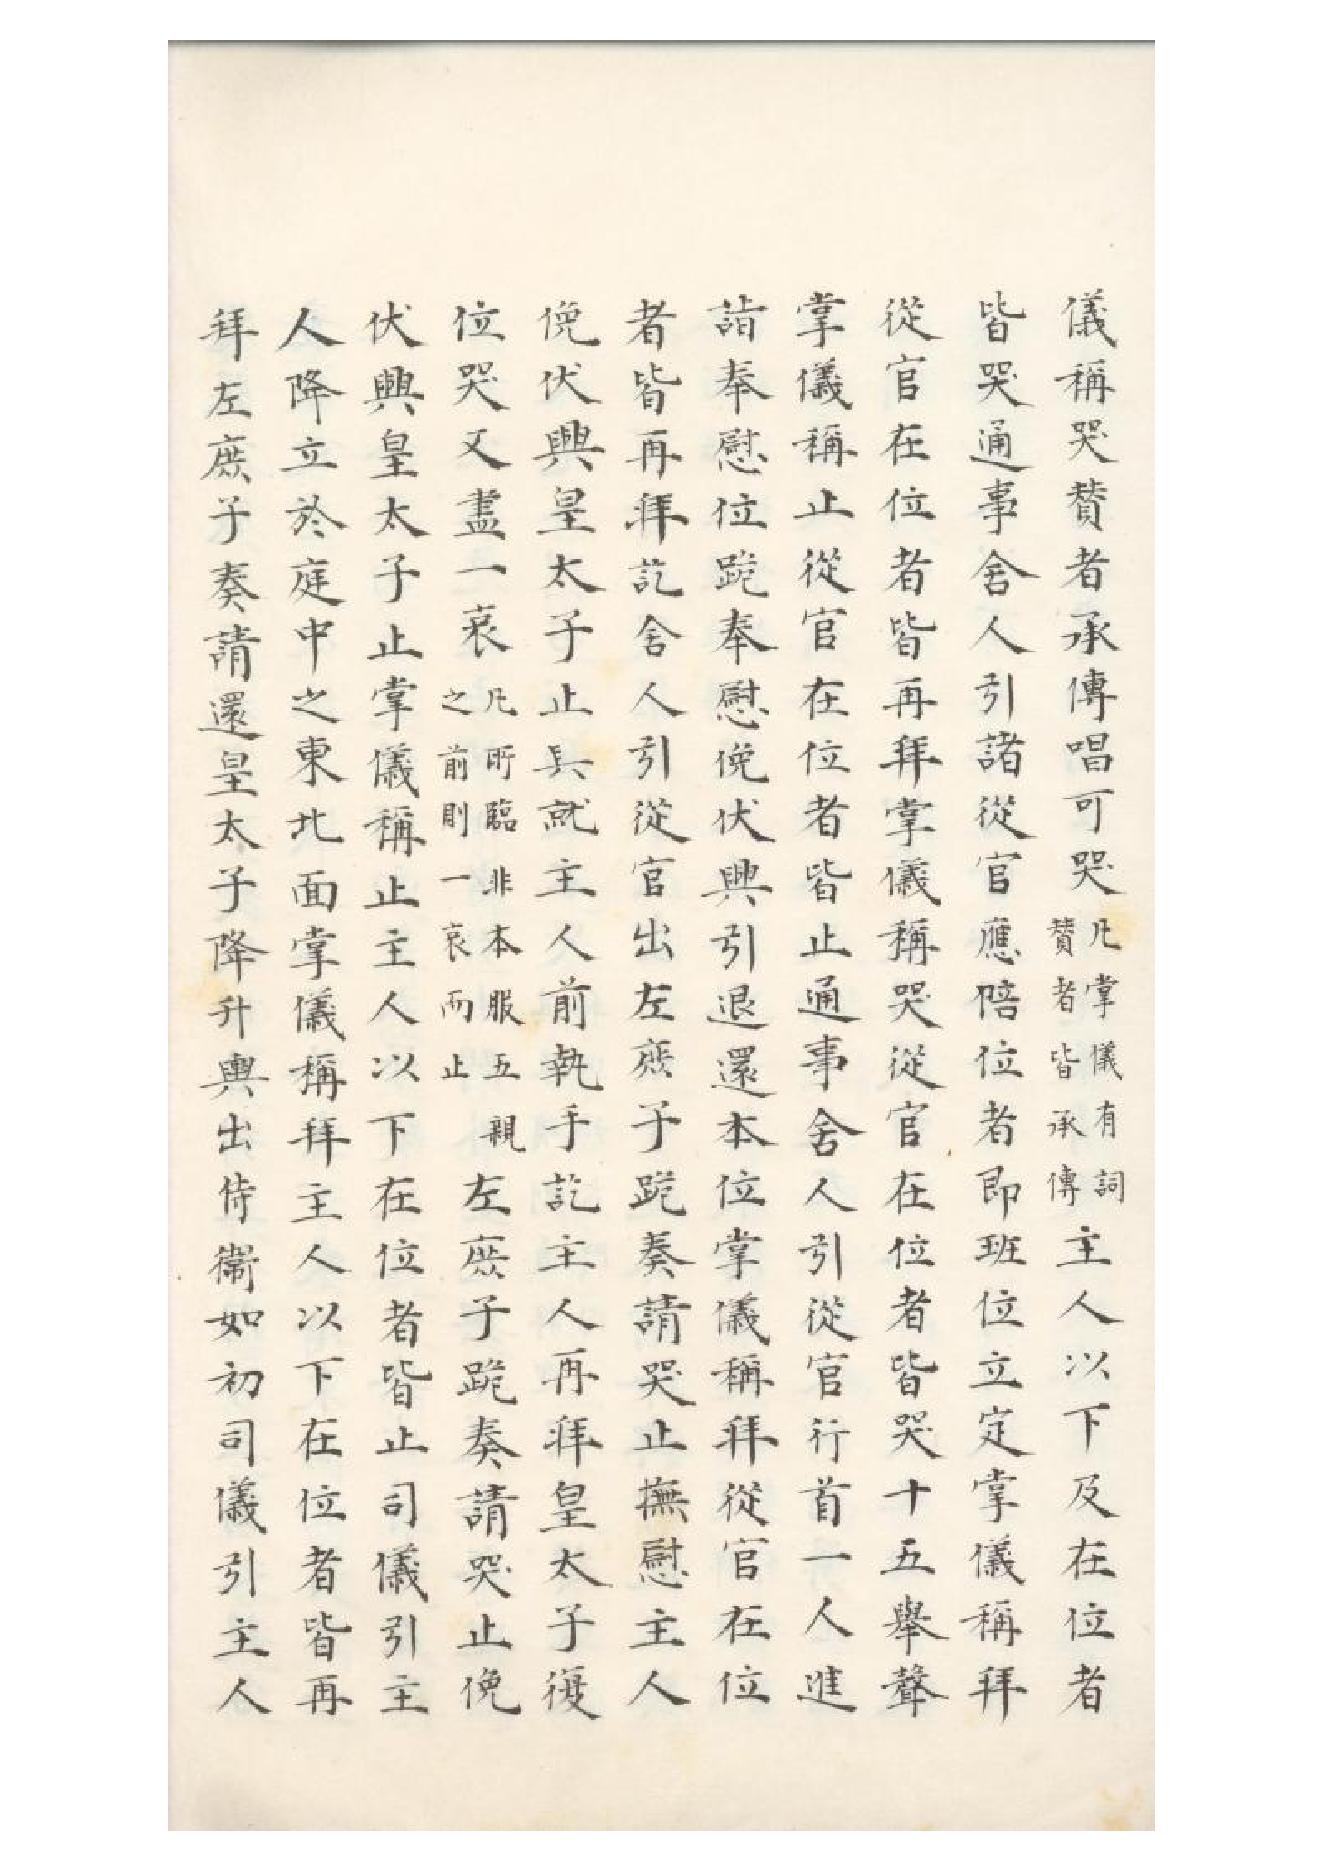 儀稱哭贊者承傳唱可哭凡掌儀有詞贊者皆承傳主人以下及在位者
皆哭通事舍人引諸從官應陪位者即班位立定掌儀稱拜
從官在位者皆再拜掌儀稱哭從官在位者皆哭十五舉聲
掌儀稱止從官在位者皆止通事舍人引從官行首一人進
詣奉慰位跪奉慰俛伏興引退還本位掌儀稱拜從官在位
者皆再拜訖舍人引從官出左庶子跪奏請哭止撫慰主人
俛伏興皇太子止哭就主人前執手訖主人再拜皇太子復
位哭又盡一哀凡所臨非本服五親之前則一哀而止左庶子跪奏請哭止俛
伏興皇太子止掌儀稱止主人以下在位者皆止司儀引主
人降立於庭中之東北面掌儀稱拜主人以下在位者皆再
拜左庶子奏請還皇太子降升輿出侍衛如初司儀引主人